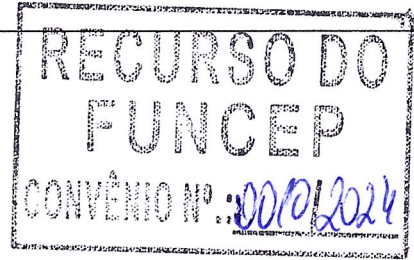 RECURSO DO
FUNCEP
CONVÊNIO Nº.: 0010/2024